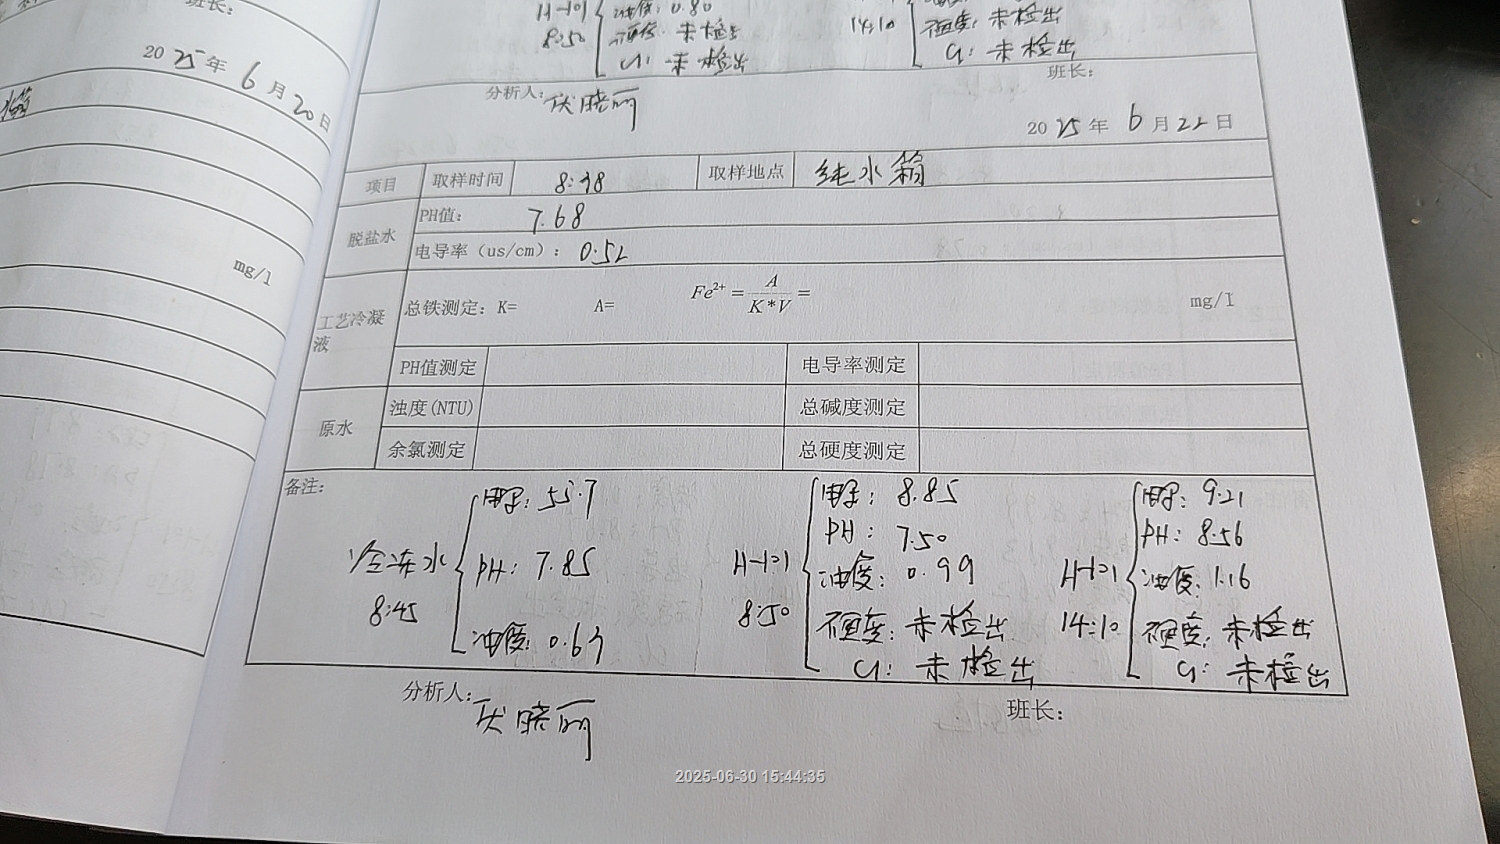 班长:
2025年6月20日
mg/l
H-101
8:50
浊度: 0.80
硬度: 未检出
Cl: 未检出
14:10
硬度: 未检出
Cl: 未检出
分析人: 伏晓丽
班长:
2025年6月22日
项目 取样时间 8:38 取样地点 纯水箱
脱盐水
PH值: 7.68
电导率（us/cm）: 0.52
工艺冷凝液
总铁测定: K= A= Fe²⁺=A/(K*V)= mg/l
PH值测定 电导率测定
原水
浊度(NTU) 总碱度测定
余氯测定 总硬度测定
备注:
冷冻水
8:45
电导: 55.7
PH: 7.85
浊度: 0.63
H-101
8:50
电导: 8.85
PH: 7.50
浊度: 0.99
硬度: 未检出
Cl: 未检出
H-101
14:10
电导: 9.21
PH: 8.56
浊度: 1.16
硬度: 未检出
Cl: 未检出
分析人: 伏晓丽
班长:
2025-06-30 15:44:35